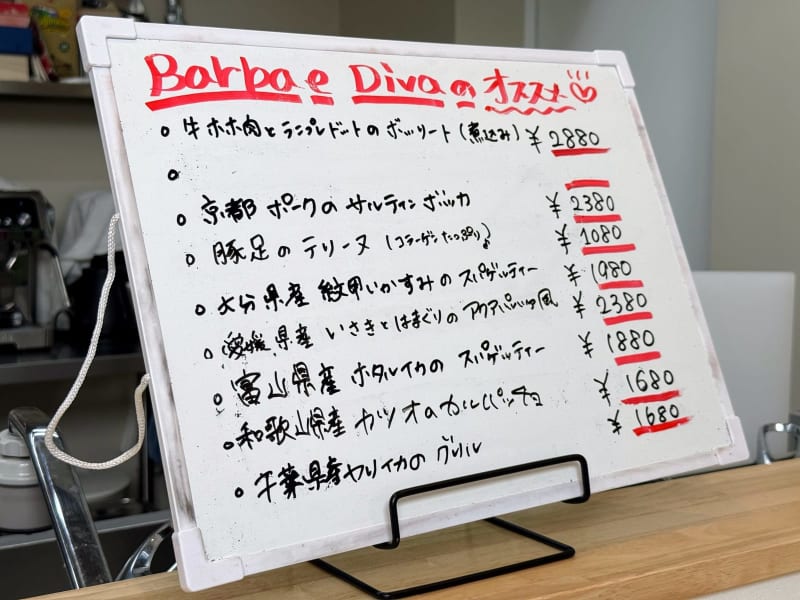 Barba e Divaのオススメ♡
牛ホホ肉とランプレドットのボッリート(煮込み) ¥2880
京都ポークのサルティンボッカ ¥2380
豚足のテリーヌ(コラーゲンたっぷり♪ ¥1080
大分県産 紋甲いかすみのスパゲルティー ¥1980
愛媛県産 いさきとはまぐりのアクアパッツァ風 ¥2380
富山県産 ホタルイカのスパゲルティー ¥1880
和歌山県産 カツオのカルパッチョ ¥1680
千葉県産ヤリイカのグリル ¥1680